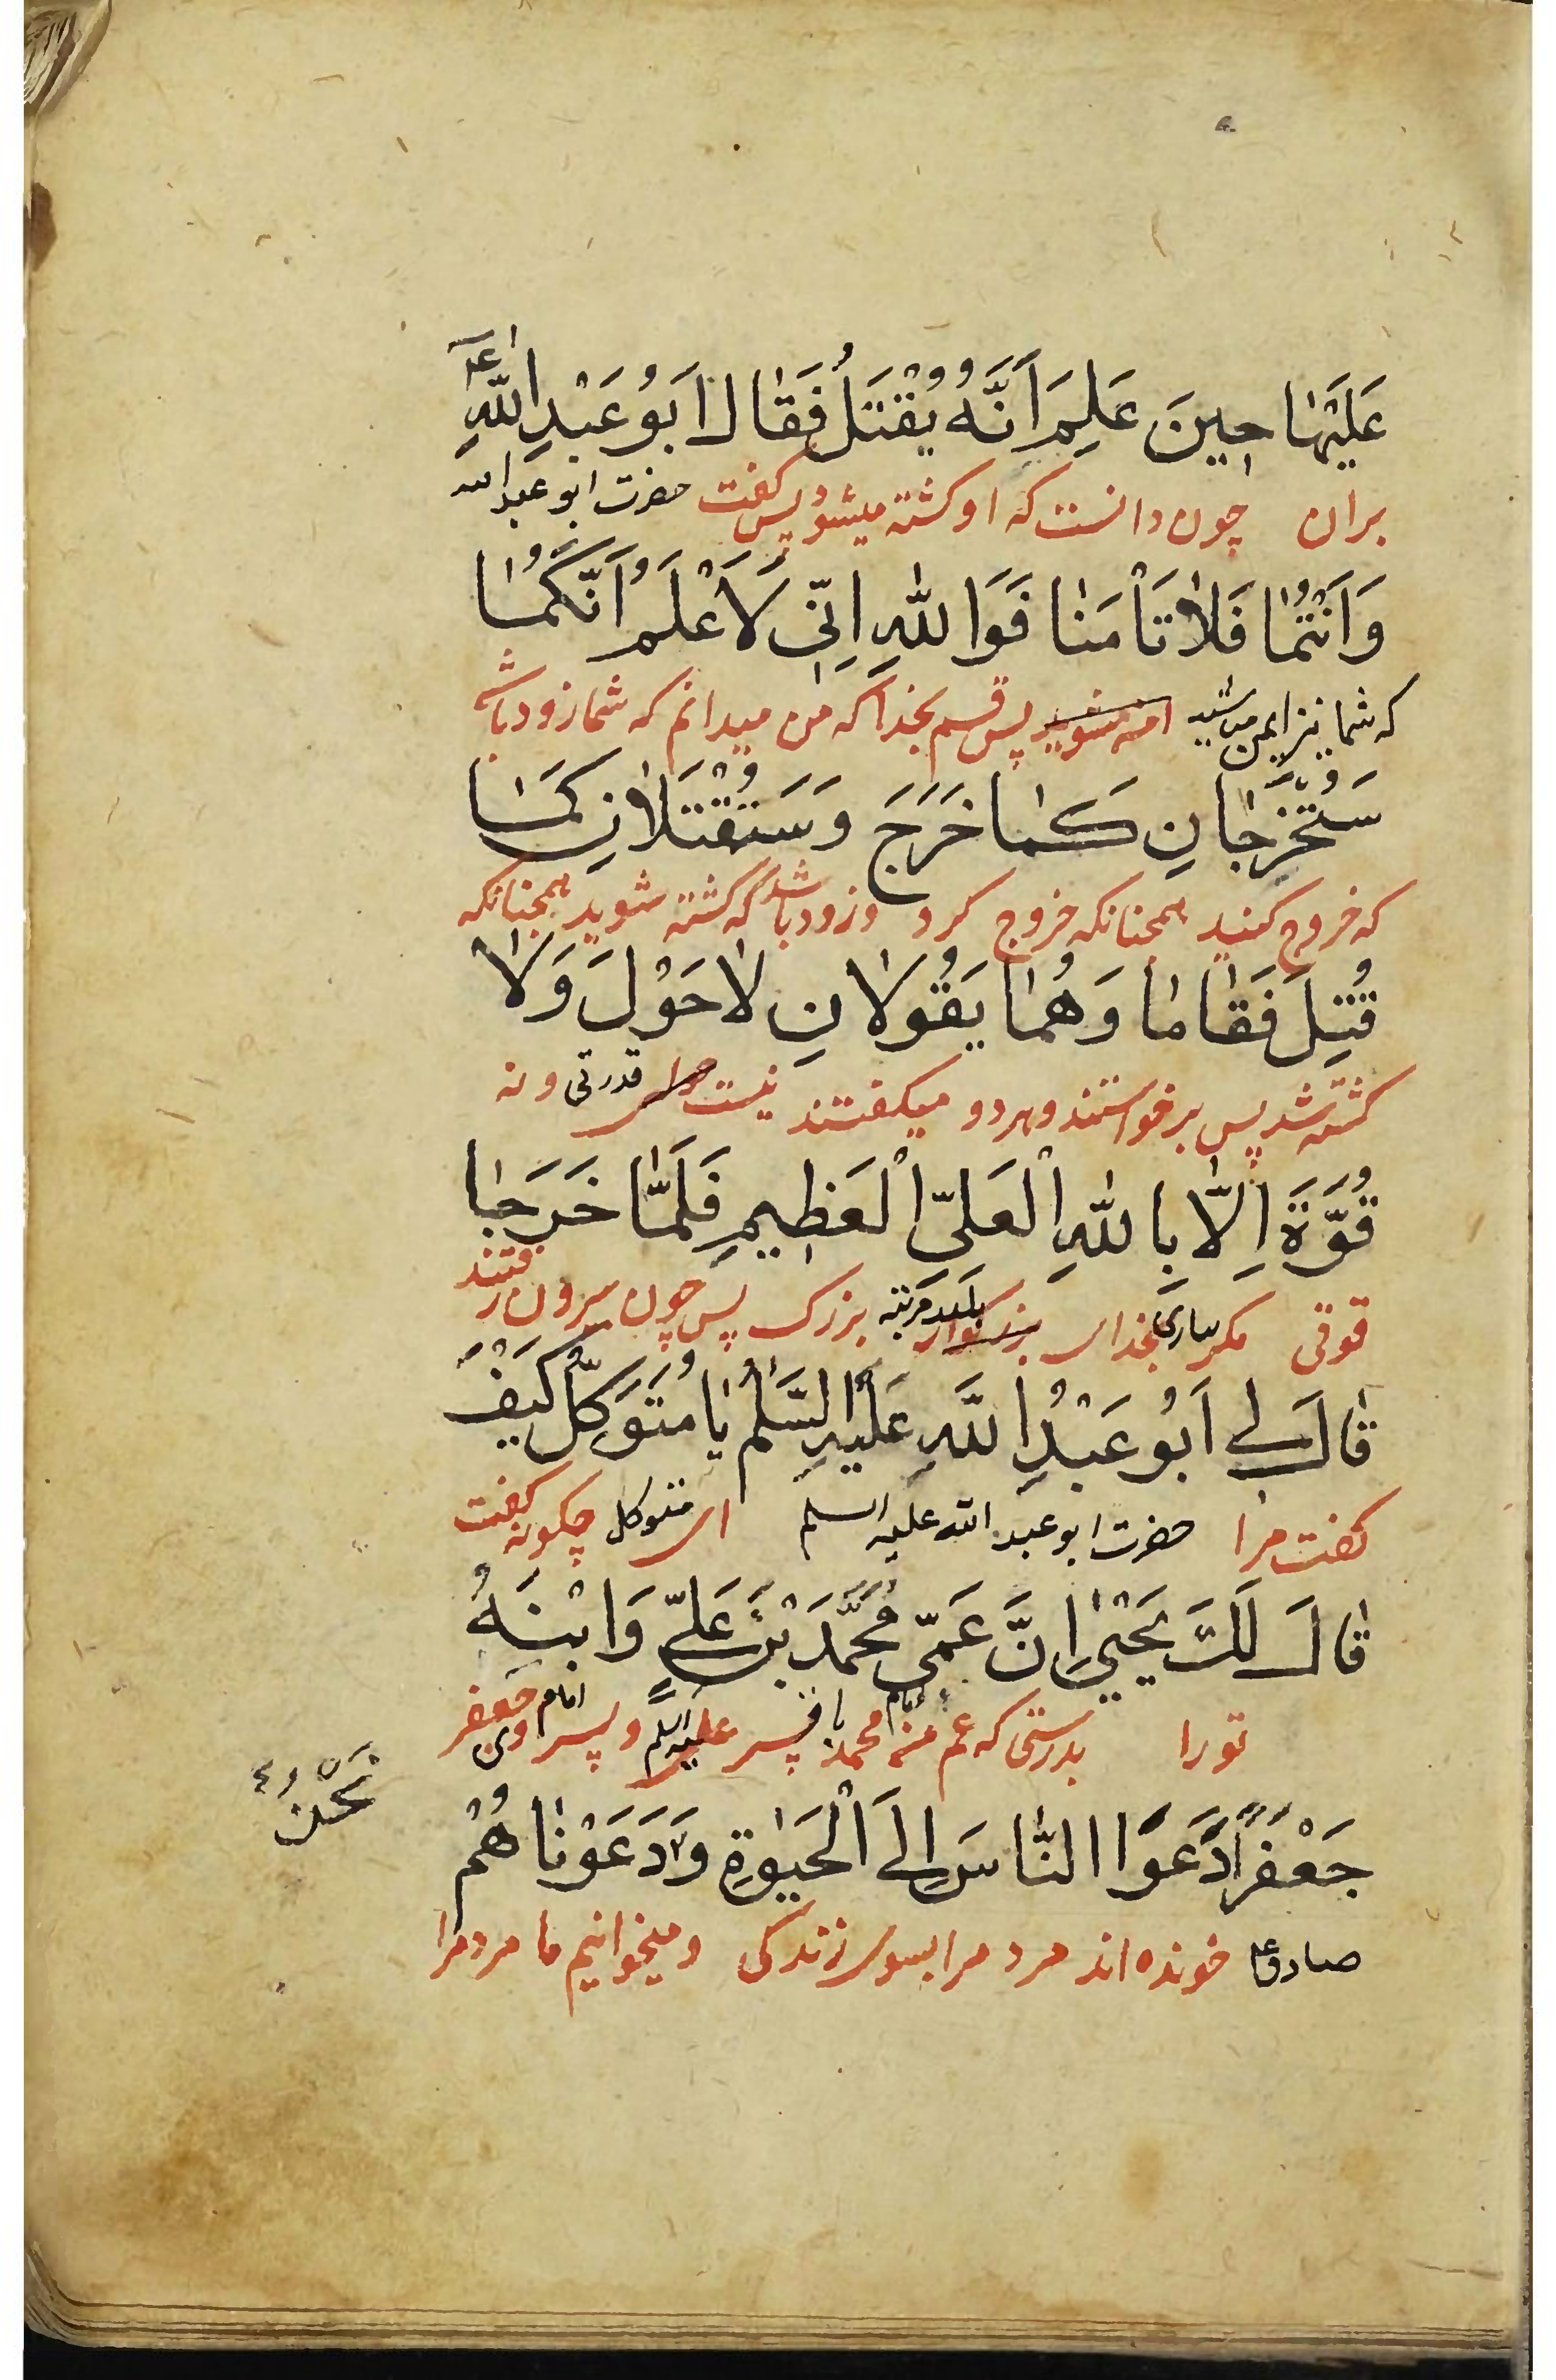 عَلَيْهَا حِينَ عَلِمَ اَنَّهُ يُقْتَلُ فَقَالَ اَبُو عَبْدِ اللّٰهِ ع
بران چون دانست که او کشته میشود پس گفت حضرت ابو عبد الله
وَاَنْتُمَا فَلَا تَأْمَنَا فَوَاللّٰهِ اِنِّي لَاَعْلَمُ اَنَّكُمَا
که شما نیز ایمن مباشید پس قسم بخدا که من میدانم که شما زود باشد
سَتَخْرُجَانِ كَمَا خَرَجَ وَسَتُقْتَلَانِ كَمَا
که خروج کنید همچنانکه خروج کرد و زود باشد که کشته شوید همچنانکه
قُتِلَ فَقَامَا وَهُمَا يَقُولَانِ لَا حَوْلَ وَلَا
کشته شد پس برخواستند و هر دو میگفتند نیست قدرتی و نه
قُوَّةَ اِلَّا بِاللّٰهِ الْعَلِيِّ الْعَظِيمِ فَلَمَّا خَرَجَا
قوتی مکر بیاری خدای بلند مرتبه بزرک پس چون بیرون رفتند
قَالَ لِي اَبُو عَبْدِ اللّٰهِ عَلَيْهِ السَّلٰمُ يَا مُتَوَكِّلُ كَيْفَ
گفت مرا حضرت ابو عبد الله علیه السلم ای متوکل چکونه گفت
قَالَ لَكَ يَحْيٰى اِنَّ عَمِّي مُحَمَّدَ بْنَ عَلِيٍّ وَابْنَهُ
تو را بدرستی که عم من امام محمد باقر علیه السلم و پسر وی امام جعفر
جَعْفَرًا دَعَوَا النَّاسَ اِلَى الْحَيٰوةِ وَدَعَوْنَاهُمْ
صادق ع خونده اند مردمرا بسوی زندکی و میخوانیم ما مردمرا
نَحْنُ